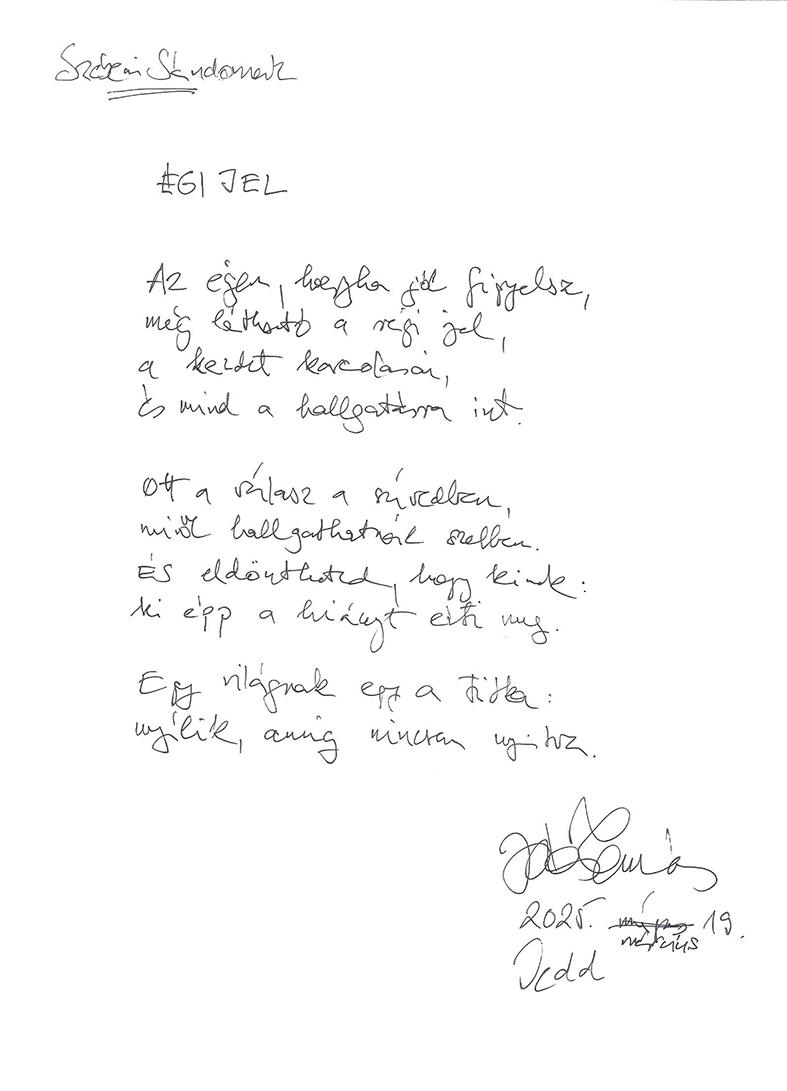 ÉGI JEL
Az égen, hogyha jól figyelsz,
még látható a régi jel,
a kezdet karcolásai,
És mind a hallgatásra int.
Ott a válasz a szívedben,
miről hallgathatnál szebben.
És eldöntheted, hogy kinek:
ki épp a hiányt érti meg.
Egy világnak egy a titka:
nyílik, amíg nincsen nyitva.
2025. március 19.